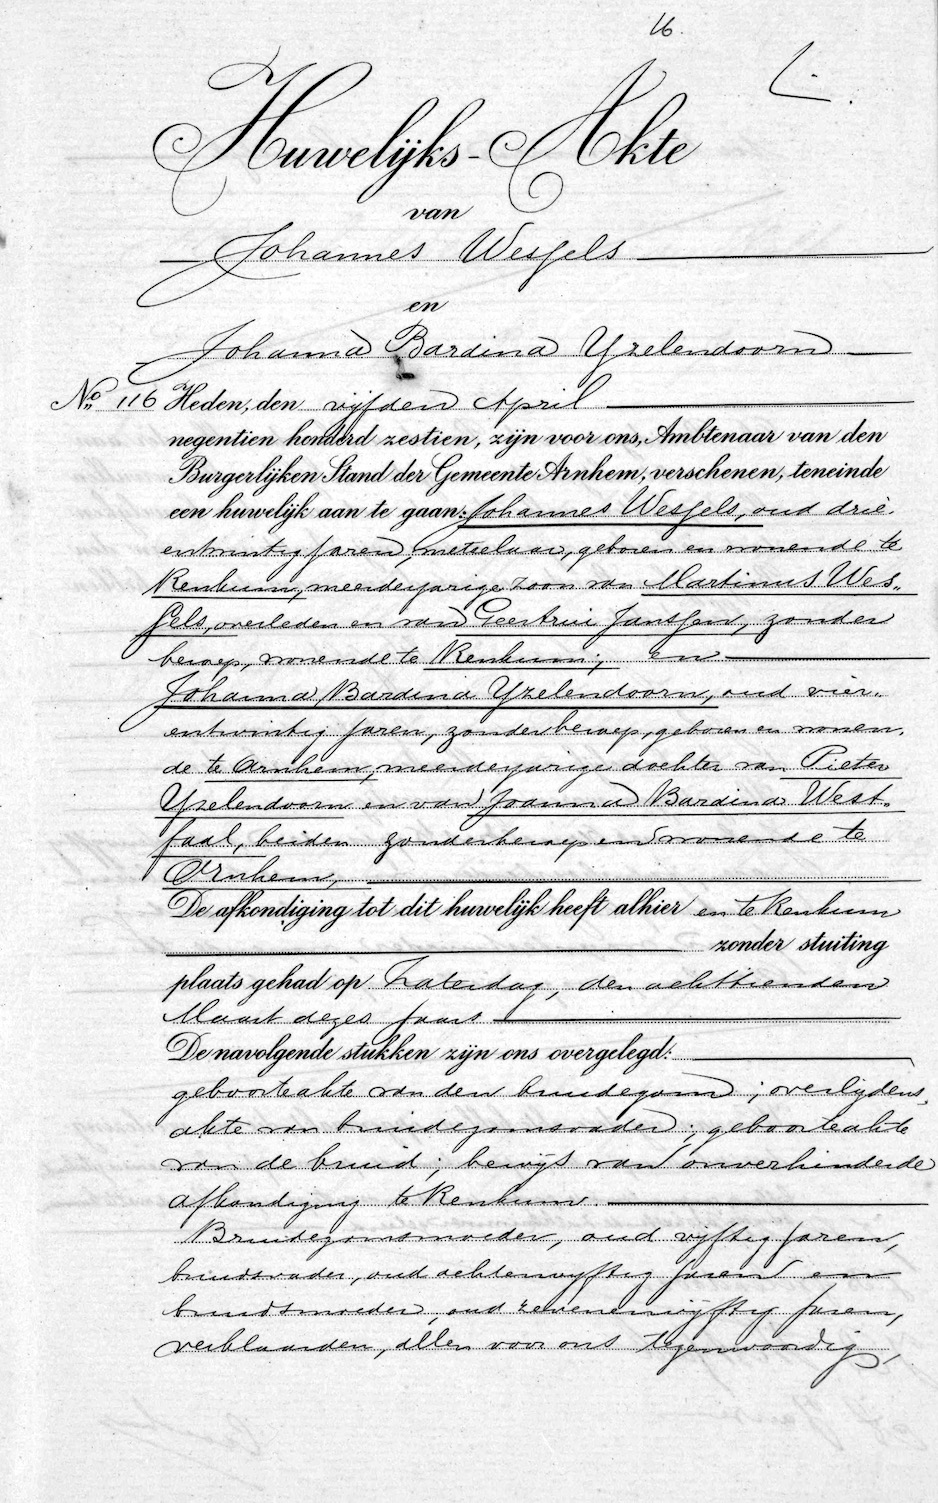 16.
Huwelijks-Akte
van
Johannes Wessels
en
Johanna Bardina Yzelendoorn
No. 116 Heden, den vijfden April
negentien honderd zestien, zijn voor ons, Ambtenaar van den
Burgerlijken Stand der Gemeente Arnhem, verschenen, teneinde
een huwelijk aan te gaan: Johannes Wessels, oud drie-
entwintig jaren, metselaar, geboren en wonende te
Renkum, meerderjarige zoon van Martinus Wes-
sels, overleden en van Geertrui Janssen, zonder
beroep, wonende te Renkum; en
Johanna Bardina Yzelendoorn, oud vier-
entwintig jaren, zonder beroep, geboren en wonen-
de te Arnhem, meerderjarige dochter van Pieter
Yzelendoorn en van Joanna Bardina West-
faal, beiden zonder beroep en wonende te
Arnhem,
De afkondiging tot dit huwelijk heeft alhier en te Renkum
zonder stuiting
plaats gehad op Zaterdag, den achttienden
Maart dezes jaars
De navolgende stukken zijn ons overgelegd:
geboorteakte van den bruidegom; overlijdens-
akte van bruidegomsvader; geboorteakte
van de bruid; bewijs van onverhinderde
afkondiging te Renkum.
Bruidegomsmoeder, oud vijftig jaren,
bruidsvader, oud achtenvijftig jaren en
bruidsmoeder, oud zevenenvijftig jaren,
verklaarden, allen voor ons tegenwoordig,